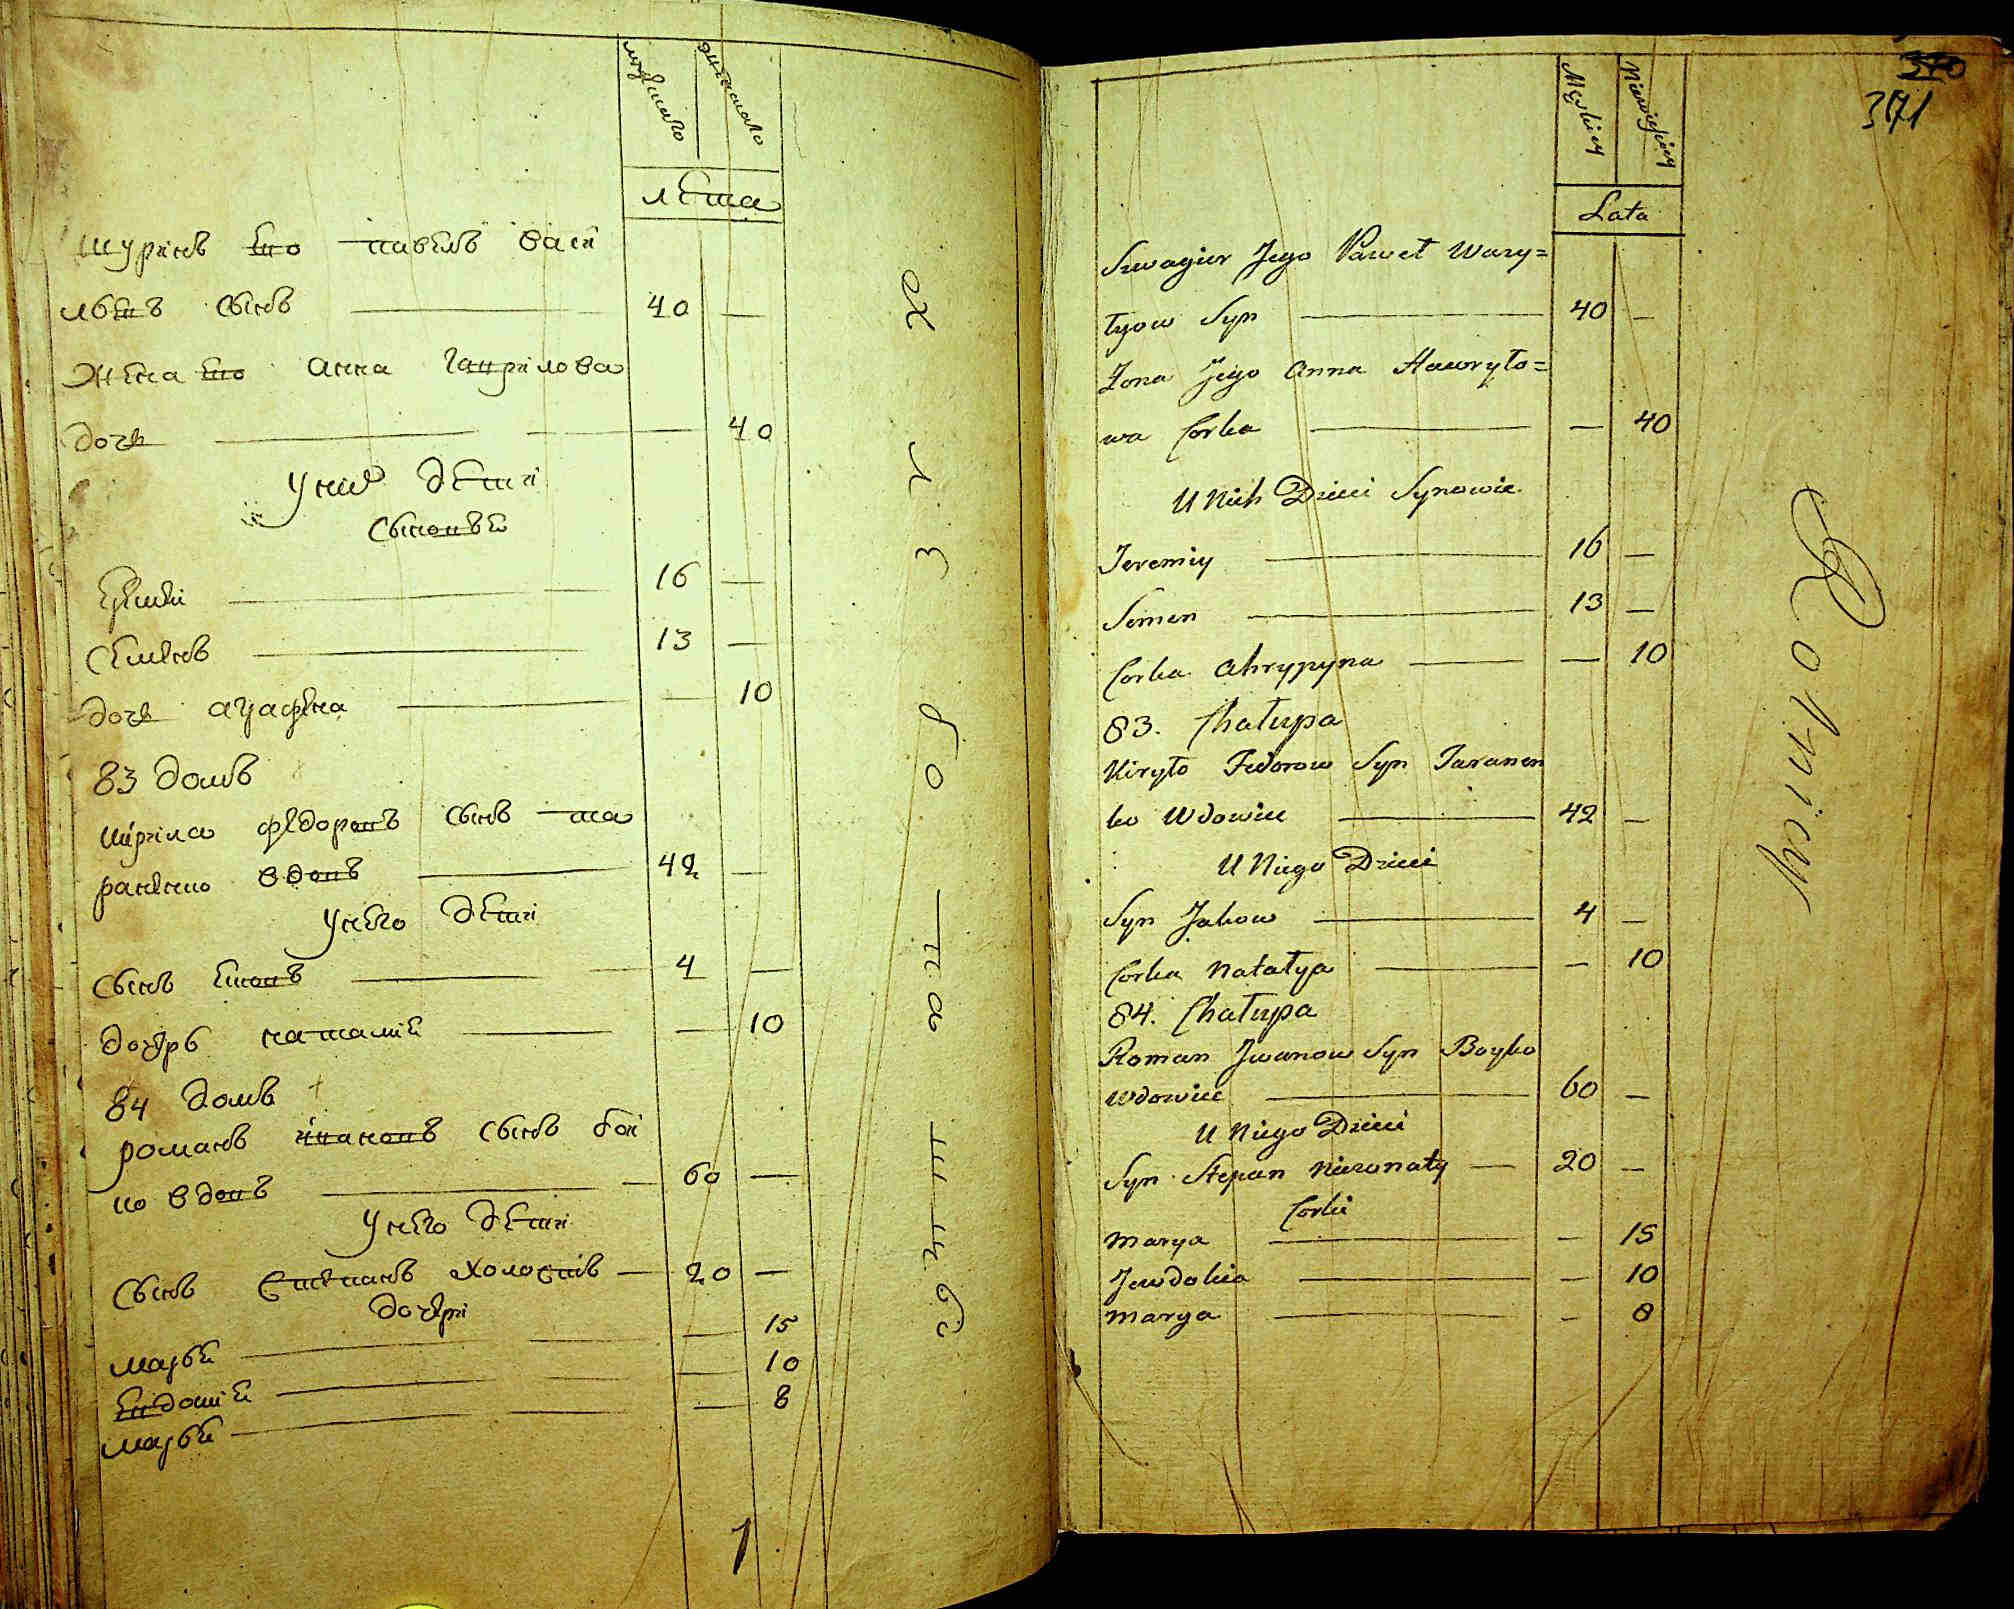 мужеска женска
лета
шуринъ его павелъ васи
льевъ сынъ 40 —
жена его анна гаврилова
дочь — 40
у них дети
сыновей
еремей 16 —
семенъ 13 —
дочь аграфена — 10
83 домъ
кирила федоровъ сынъ та
раненко вдовъ 42 —
у него дети
сынъ яковъ 4 —
дочерь наталия — 10
84 домъ
романъ ивановъ сынъ бой
ко вдовъ 60 —
у него дети
сынъ степанъ холостъ — 20 —
дочери
марья — 15
евдокия — 10
марья — 8
1
370
371
Męskiey Niewieskiey
Lata
Szwagier Jego Paweł Wasy=
lyow Syn 40 —
Zona Jego Anna Hawryło=
wa Corka — 40
U Nich Dzieci Synowie
Jeremiy 16 —
Semen 13 —
Corka Ahrypyna — 10
83. Chałupa
Kiryło Fedorow Syn Taranen
ko Wdowiec 42 —
U Niego Dzieci
Syn Jakow 4 —
Corka Natalya — 10
84. Chałupa
Roman Jwanow Syn Boyko
Wdowiec 60 —
U Niego Dzieci
Syn Stepan Nieżonaty — 20 —
Corki
Marya — 15
Jewdokia — 10
Marya — 8
Rolnicy